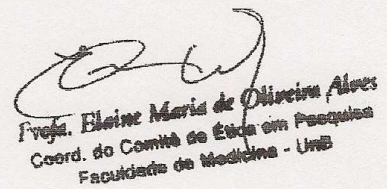 Profa. Elaine Maria de Oliveira Alves
Coord. do Comitê de Ética em Pesquisa
Faculdade de Medicina - UnB